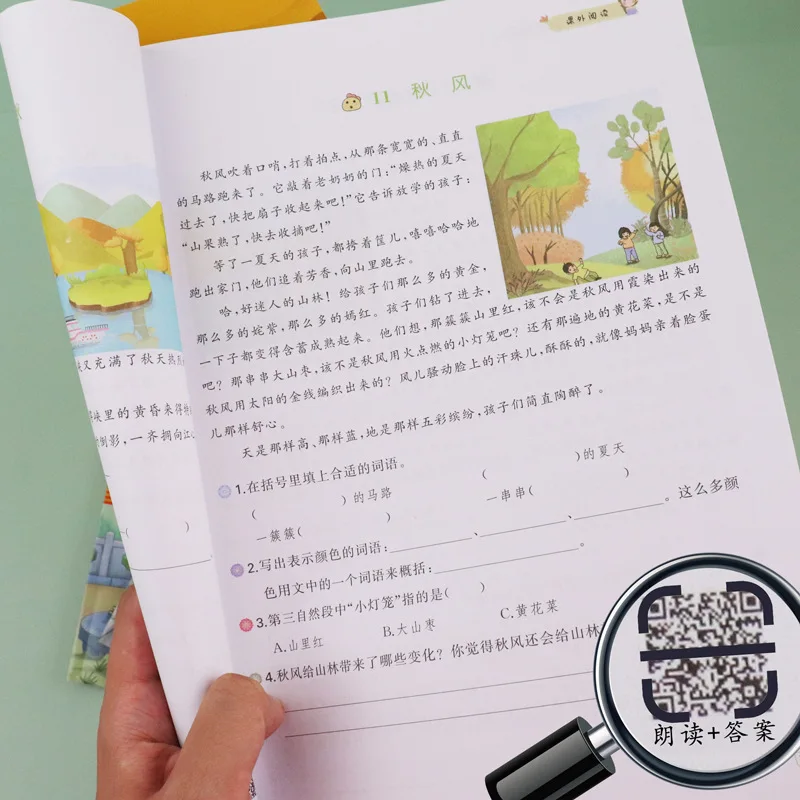 课外阅读
11 秋风
秋风吹着口哨,打着拍点,从那条宽宽的、直直
的马路跑来了。它敲着老奶奶的门:“燥热的夏天
过去了,快把扇子收起来吧!”它告诉放学的孩子:
“山果熟了,快去收摘吧!”
等了一夏天的孩子,都挎着筐儿,嘻嘻哈哈地
跑出家门,他们追着芳香,向山里跑去。
哈,好迷人的山林!给孩子们那么多的黄金,
那么多的姹紫,那么多的嫣红。孩子们钻了进去,
一下子都变得含蓄成熟起来。他们想,那簇簇山里红,该不会是秋风用霞染出来的
吧?那串串大山枣,该不是秋风用火点燃的小灯笼吧?还有那遍地的黄花菜,是不是
秋风用太阳的金线编织出来的?风儿骚动脸上的汗珠儿,酥酥的,就像妈妈亲着脸蛋
儿那样舒心。
天是那样高、那样蓝,地是那样五彩缤纷,孩子们简直陶醉了。
1.在括号里填上合适的词语。
( )的马路 ( )的夏天
一簇簇( ) 一串串( )
2.写出表示颜色的词语: 、 、 。这么多颜
色用文中的一个词语来概括: 。
3.第三自然段中“小灯笼”指的是( )
A.山里红 B.大山枣 C.黄花菜
4.秋风给山林带来了哪些变化?你觉得秋风还会给山林
又充满了秋天热
里的黄昏来得特
倒影,一齐拥向江心
( )
朗读+答案